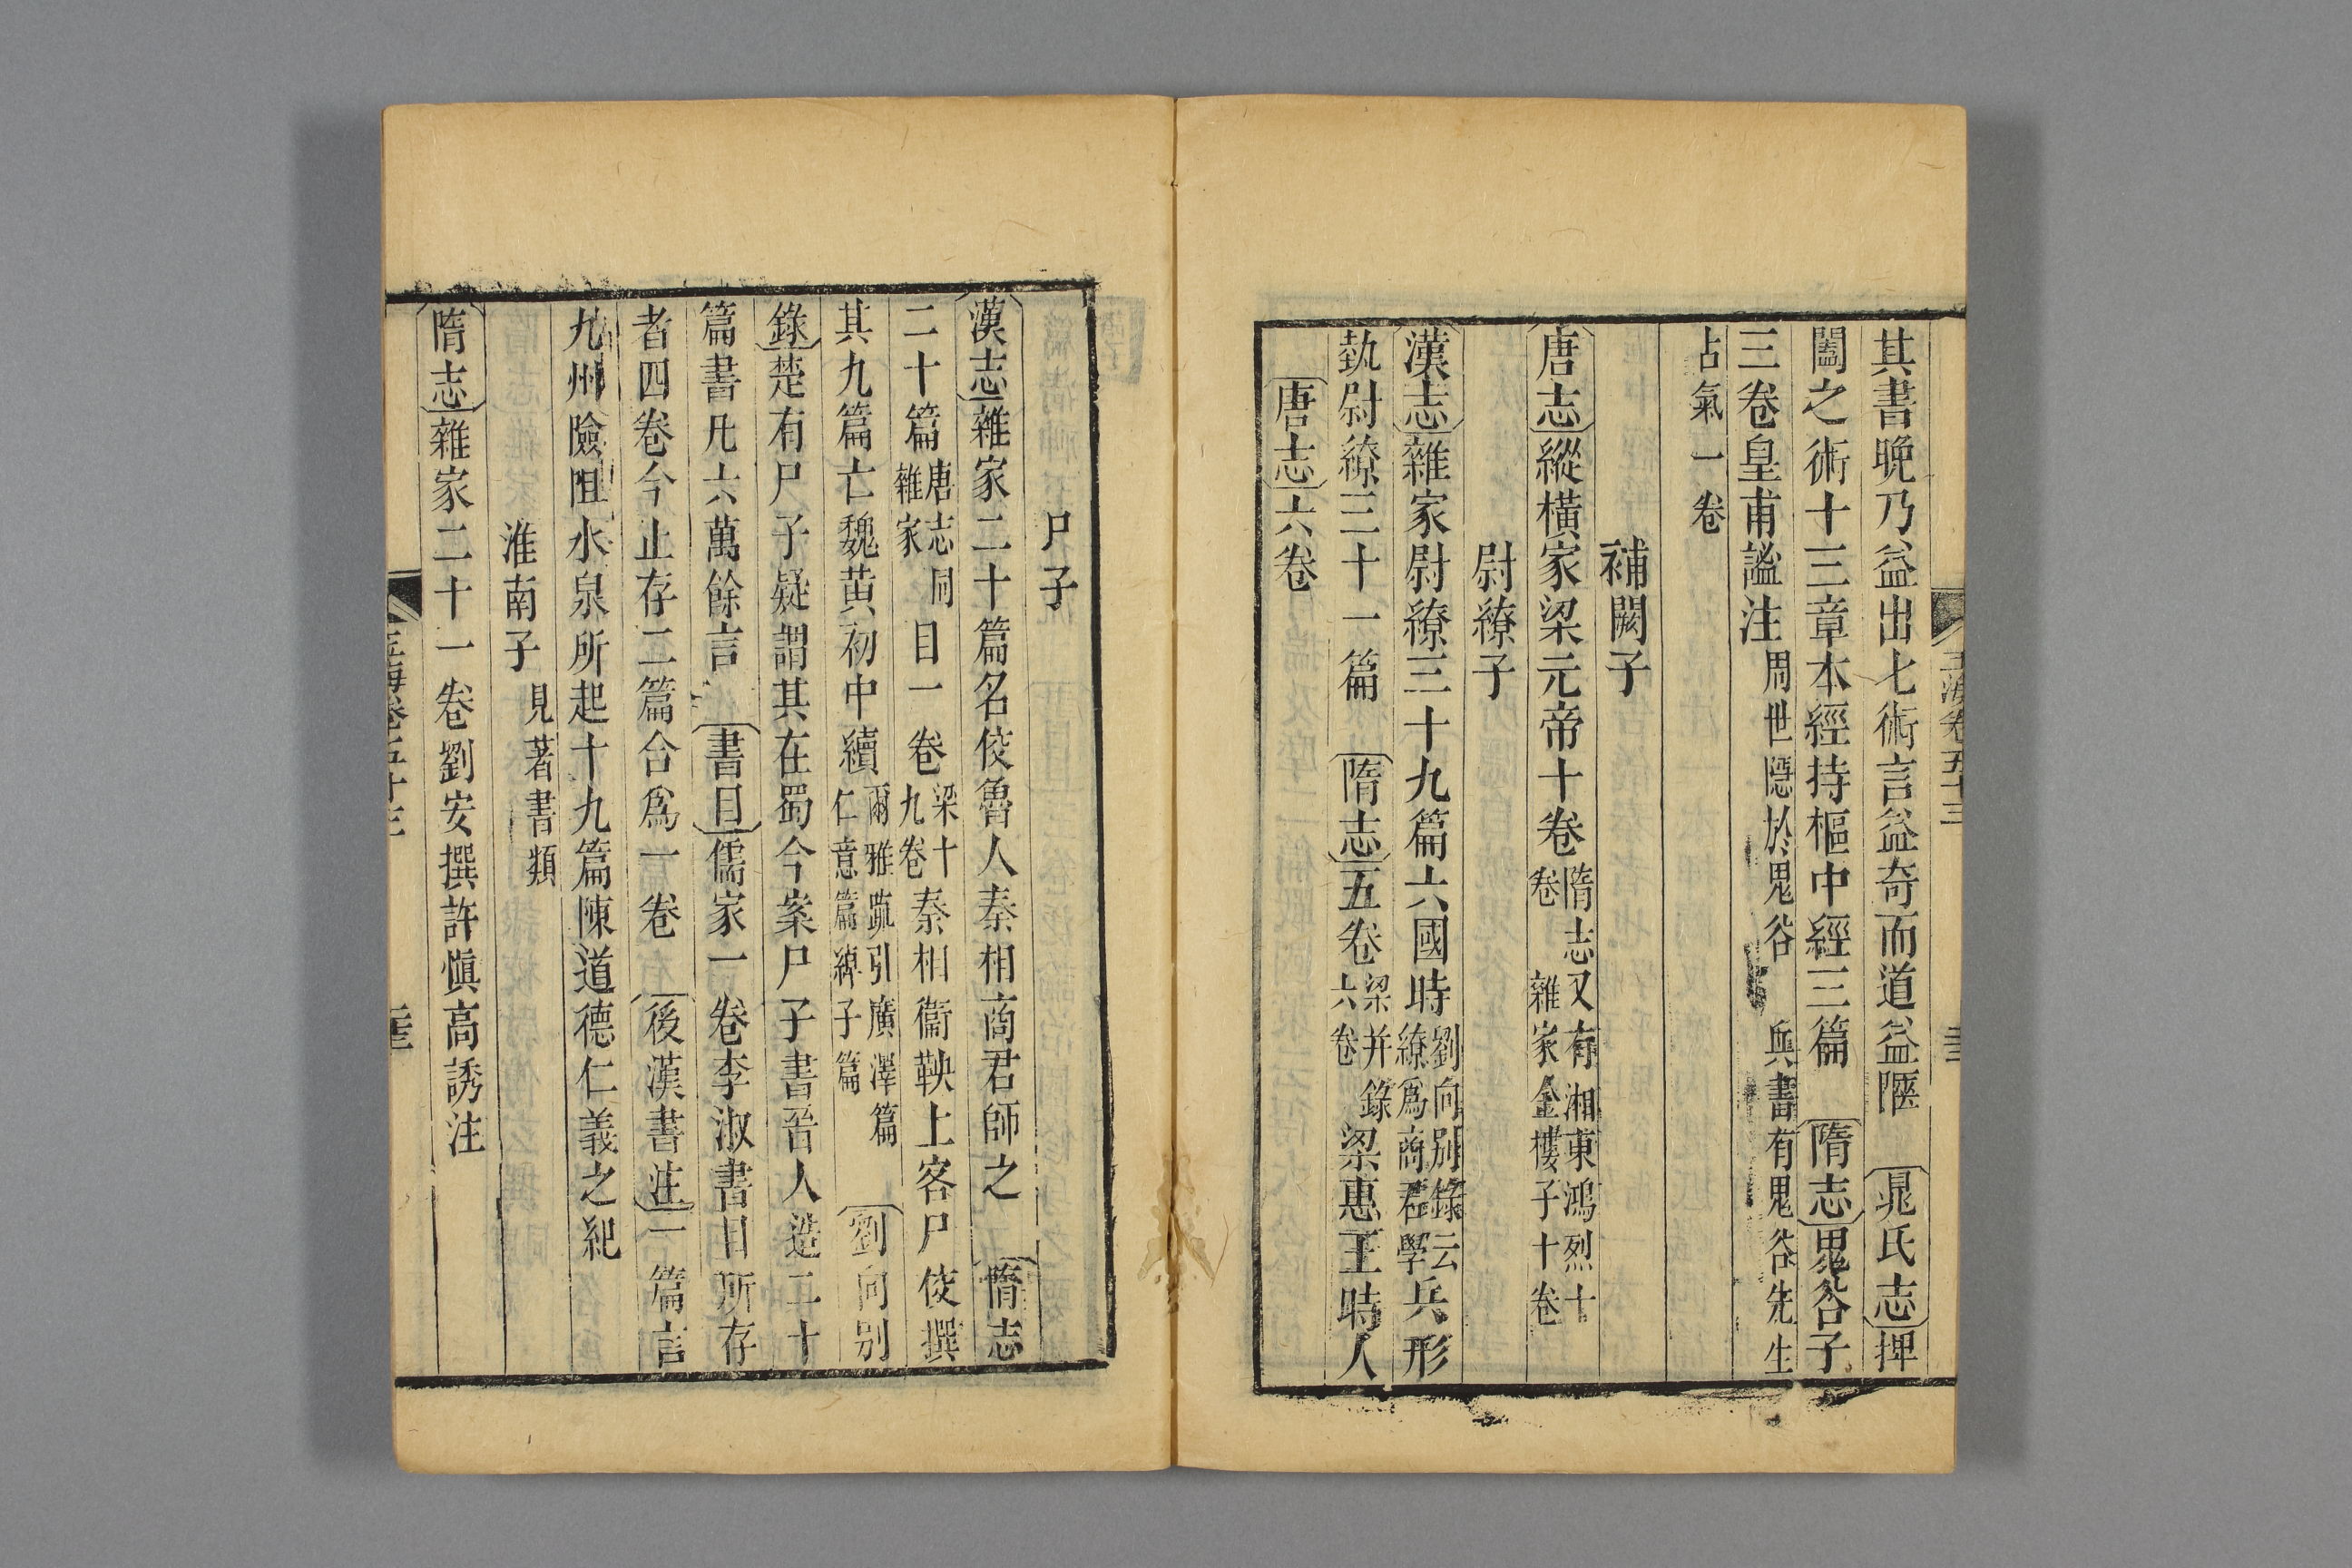 玉海卷五十三
其書晚乃益出七術言益奇而道益陿 晁氏志捭
闔之術十三章本經持樞中經三篇 隋志鬼谷子
三卷皇甫謐注周世隱於鬼谷 兵書有鬼谷先生
占氣一卷
補闕子
唐志縱橫家梁元帝十卷隋志又有湘東鴻烈十卷雜家金樓子十卷
尉繚子
漢志雜家尉繚二十九篇六國時劉向別錄云繚爲商君學兵形
埶尉繚三十一篇 隋志五卷梁并錄六卷梁惠王時人
唐志六卷
尸子
漢志雜家二十篇名佼魯人秦相商君師之 隋志
二十篇唐志同雜家目一卷梁十九卷秦相衞鞅上客尸佼撰
其九篇亡魏黄初中續爾雅疏引廣澤篇仁意篇綽子篇 劉向別
錄楚有尸子疑謂其在蜀今案尸子書晉人造二十
篇書凡六萬餘言 書目儒家一卷李淑書目所存
者四卷今止存二篇合爲一卷 後漢書注一篇言
九州險阻水泉所起十九篇陳道德仁義之紀
淮南子見著書類
隋志雜家二十一卷劉安撰許愼高誘注
玉海卷五十三